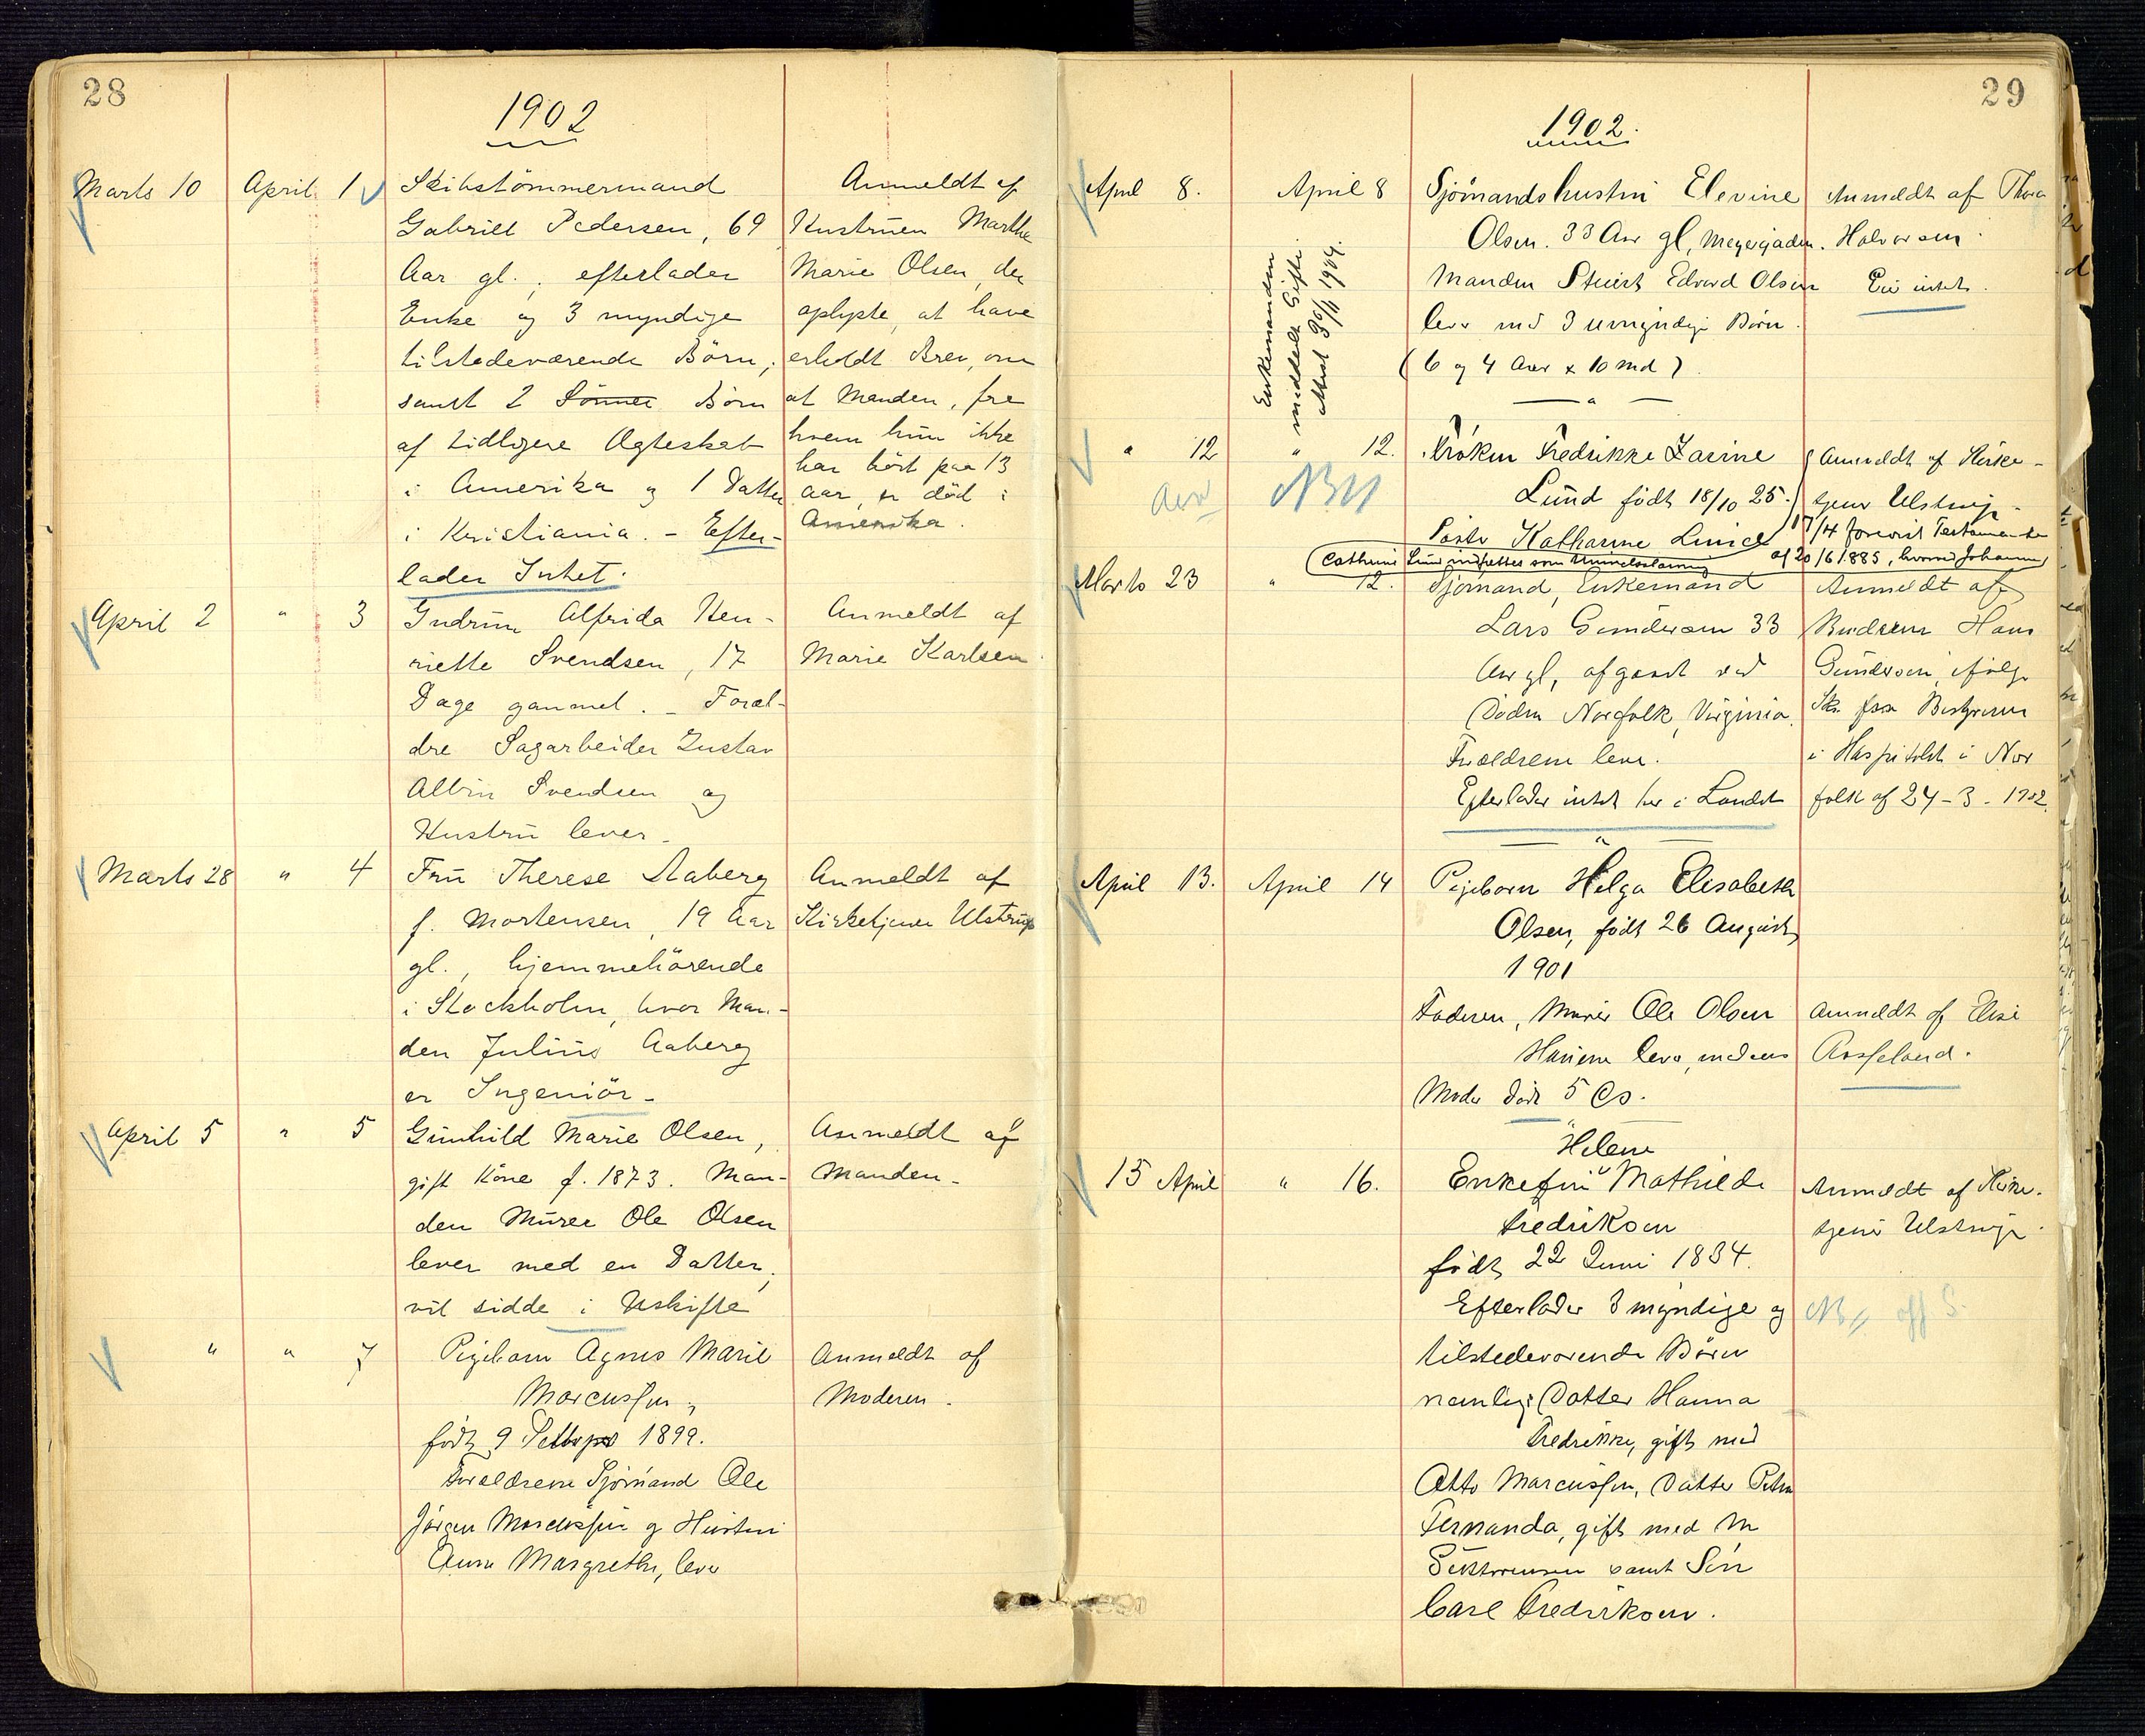 28
1902
Marts 10 April 1 Skibstömmermand
Gabriel Pedersen, 69
Aar gl., efterlader
Enke og 3 myndige
tilstedeværende Börn,
samt 2 Sönner Börn
af tidligere Ægteskab
i Amerika og 1 Datter
i Kristiania. - Efter-
lader Intet.
Anmeldt af
Hustruen Marthe
Marie Olsen, der
oplyste, at have
erholdt Brev, om
at Manden, fra
hvem hun ikke
har hört paa 13
aar, er död i
Amerika.
April 2 " 3 Gudrun Alfrida Hen-
riette Svendsen, 17
Dage gammel. - Foræl-
dre Sagarbeider Gustav
Albin Svendsen og
Hustru lever.
Anmeldt af
Marie Karlsen
Marts 28 " 4 Fru Therese Aaberg
f. Mortensen, 19 Aar
gl., hjemmehörende
i Stockholm, hvor Man-
den Julius Aaberg
er Ingeniör -
Anmeldt af
Kirketjener Ulstrup
April 5 " 5 Gunhild Marie Olsen,
gift Kone f. 1873. Man-
den Murer Ole Olsen
lever med en Datter,
vil sidde i Uskifte
Anmeldt af
Manden -
" " 7 Pigebarn Agnes Marie
Marcussen,
födt 9 Septbr 1899.
Forældrene Sjömand Ole
Jörgen Marcussen og Hustru
Anna Margrethe, lever
Anmeldt af
Moderen.
29
1902.
April 8. April 8 Sjömandshustru Elevine
Olsen. 33 Aar gl, Meyergaden.
Manden Stuert Edvard Olsen
lever med 3 umyndige Börn.
(6 og 4 Aar & 10 md)
Anmeldt af Thora
Halvorsen.
Eier intet.
Enkemanden
meddelt Gifte
Attest 30/11 1904.
" 12 " 12. Fröken Fredrikke Zarine
Lund födt 18/10 25.
Söster Katharine Lund
Anmeldt af Kirke-
tjener Ulstrup.
17/4 forevist Testamente
af 20/6 1885, hvorved Johanne
Cathrine Lund indsættes som Universalarving
NB
Marts 23 " 12. Sjömand, Enkemand
Lars Gundersen 33
Aar gl, afgaaet ved
Döden Norfolk, Virginia.
Forældrene lever.
Efterlader intet her i Landet
Anmeldt af
Broderen Hans
Gundersen, ifölge
Skr. fra Bestyreren
i Hospitalet i Nor
folk af 24-3-1902.
April 13. April 14 Pigebarn Helga Elisabeth
Olsen, födt 26 August
1901
Faderen, Murer Ole Olsen
Hisöen lever, medens
Moder döde 5 ds.
Anmeldt af Elise
Aasland.
15 April " 16. Enkefru Helene Mathilde
Fredriksen
födt 22 Juni 1834.
Efterlader 3 myndige og
tilstedeværende Börn
nemlig: Datter Hanna
Fredrikke, gift med
Otto Marcussen, Datter Petra
Fernanda, gift med M
Guttormsen samt Sön
Carl Fredriksen.
Anmeldt af Kirke-
tjener Ulstrup.
NB off S.